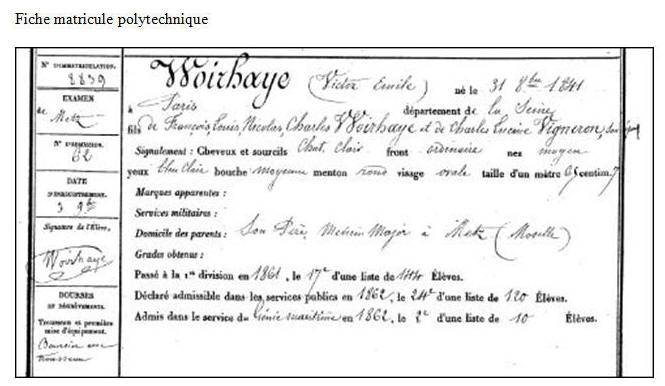 Fiche matricule polytechnique
N° D'IMMATRICULATION.
8839
EXAMEN
de Metz
N° D'ADMISSION.
62
DATE
D'ENREGISTREMENT.
3 9bre
Signature de l'Élève,
Woirhaye
BOURSES
ET DÉGRÈVEMENTS.
Trousseau et première
mise d'équipement.
Boursier avec
trousseau
Woirhaye (Victor Emile) né le 31 8bre 1841
à Paris département de la Seine
fils de François, Louis Nicolas, Charles Woirhaye et de Charles Lucine Vigneron, son
Signalement : Cheveux et sourcils Chat. Clair front ordinaire nez moyen
yeux bleu clair bouche moyenne menton rond visage ovale taille d'un mètre centim.
Marques apparentes :
Services militaires :
Domicile des parents : Son Père, Médecin Major à Metz (Moselle)
Grades obtenus :
Passé à la 1re division en 1861, le 17e d'une liste de 144 Élèves.
Déclaré admissible dans les services publics en 1862, le 24e d'une liste de 120 Élèves.
Admis dans le service du Génie maritime en 1862, le 2e d'une liste de 10 Élèves.